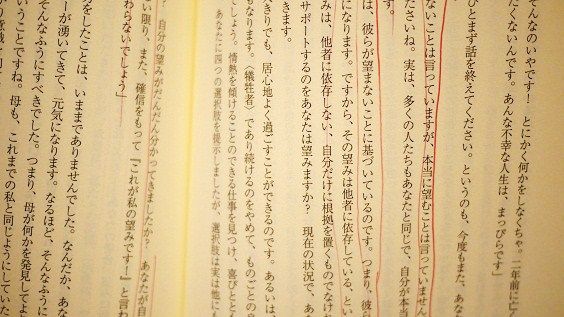 そんなのいやです！　とにかく何かをしなくちゃ。二年前に亡く
たくないんです。あんな不幸な人生は、まっぴらです」
ひとまず話を終えてください。というのも、今度もまた、あなた
ないことは言っていますが、本当に望むことは言っていません
たさいね。実は、多くの人たちもあなたと同じで、自分が本当
す。
は、彼らが望まないことに基づいているのです。つまり、彼ら
になります。ですから、その望みは他者に依存している、とい
みは、他者に依存しない、自分だけに根拠を置くものでなけれ
サポートするのをあなたは望みますか？　現在の状況で、あ
きます。
きりでも、居心地よく過ごすことができるのです。あるいは、
もなります。〈犠牲者〉であり続けるのをやめて、ものごとの
でしょう。情熱を傾けることのできる仕事を見つけ、喜びとと
あなたに四つの選択肢を提示しましたが、選択肢は実は他にも
？　自分の望みがだんだん分かってきましたか？　あなたが自
い限り、また、確信をもって『これが私の望みです！』と言わ
わらないでしょう」
をしたことは、いままでありませんでした。なんだか、あな
ーが湧いてきて、元気になります。なるほど、そんなふうに
そんなふうにすべきでした。つまり、母が何かを発見してよ
いうことですね。母も、これまでの私と同じようにしていた